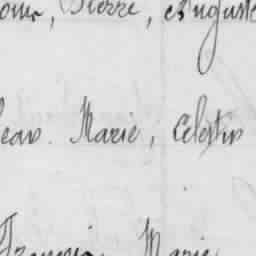 Pierre, Auguste
Jean Marie, Celestin
François, Marie